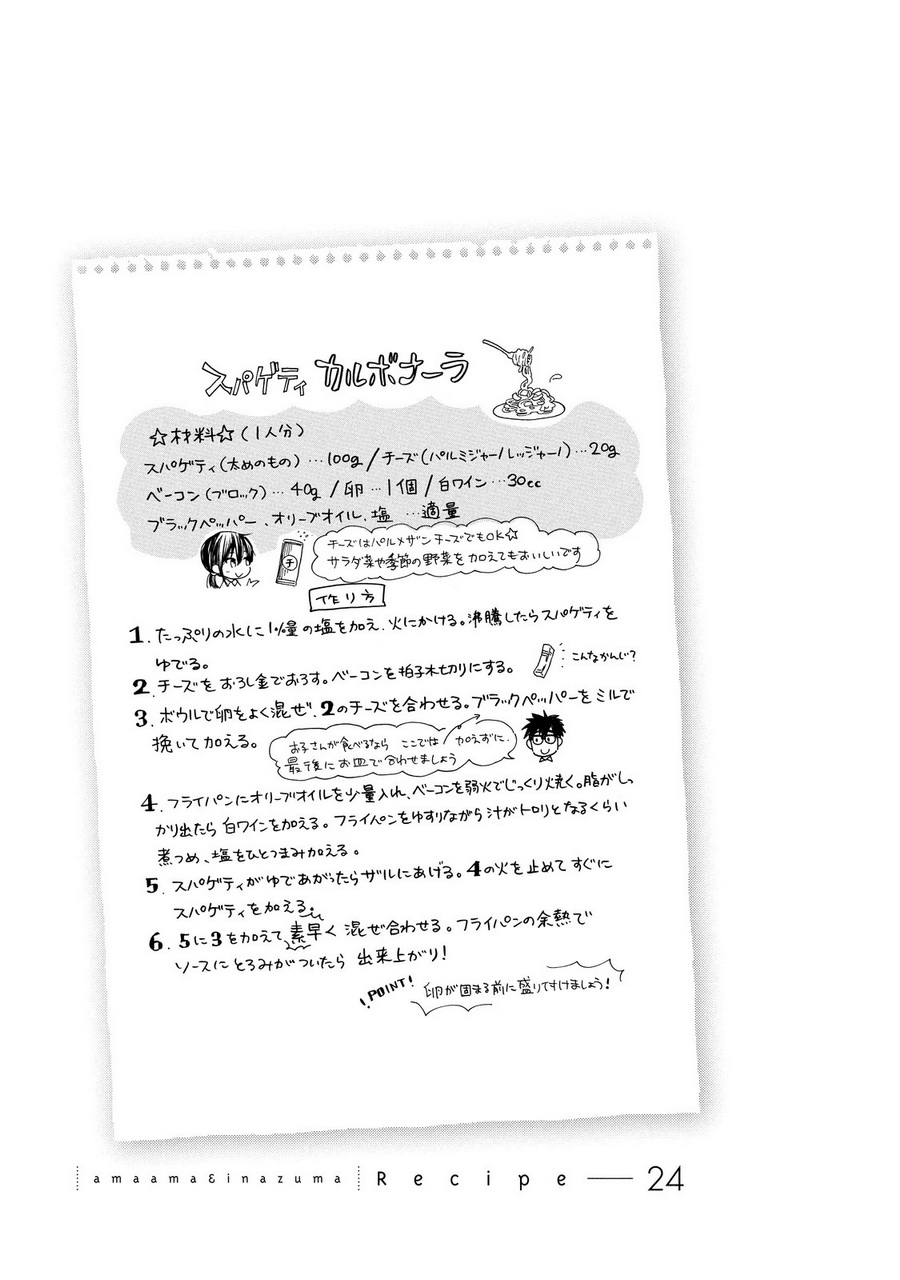 スパゲティ カルボナーラ
☆材料☆(1人分)
スパゲティ(太めのもの)…100g/チーズ(パルミジャーノレッジャーノ)…20g
ベーコン(ブロック)…40g/卵…1個/白ワイン…30cc
ブラックペッパー、オリーブオイル、塩…適量
チ
チーズはパルメザンチーズでもOK☆
サラダ菜や季節の野菜を加えてもおいしいです
作り方
1.たっぷりの水に1%量の塩を加え、火にかける。沸騰したらスパゲティを
ゆでる。
2.チーズをおろし金でおろす。ベーコンを拍子木切りにする。
こんなかんじ?
3.ボウルで卵をよく混ぜ、2のチーズを合わせる。ブラックペッパーをミルで
挽いて加える。
お子さんが食べるなら ここでは 加えずに、
最後にお皿で合わせましょう
4.フライパンにオリーブオイルを少量入れ、ベーコンを弱火でじっくり焼く。脂がしっ
かり出たら白ワインを加える。フライパンをゆすりながら汁がトロリとなるくらい
煮つめ、塩をひとつまみ加える。
5.スパゲティがゆであがったらザルにあげる。4の火を止めてすぐに
スパゲティを加える。
6.5に3を加えて素早く混ぜ合わせる。フライパンの余熱で
ソースにとろみがついたら 出来上がり!
!POINT! 卵が固まる前に盛りつけましょう!
amaama&inazuma Recipe — 24